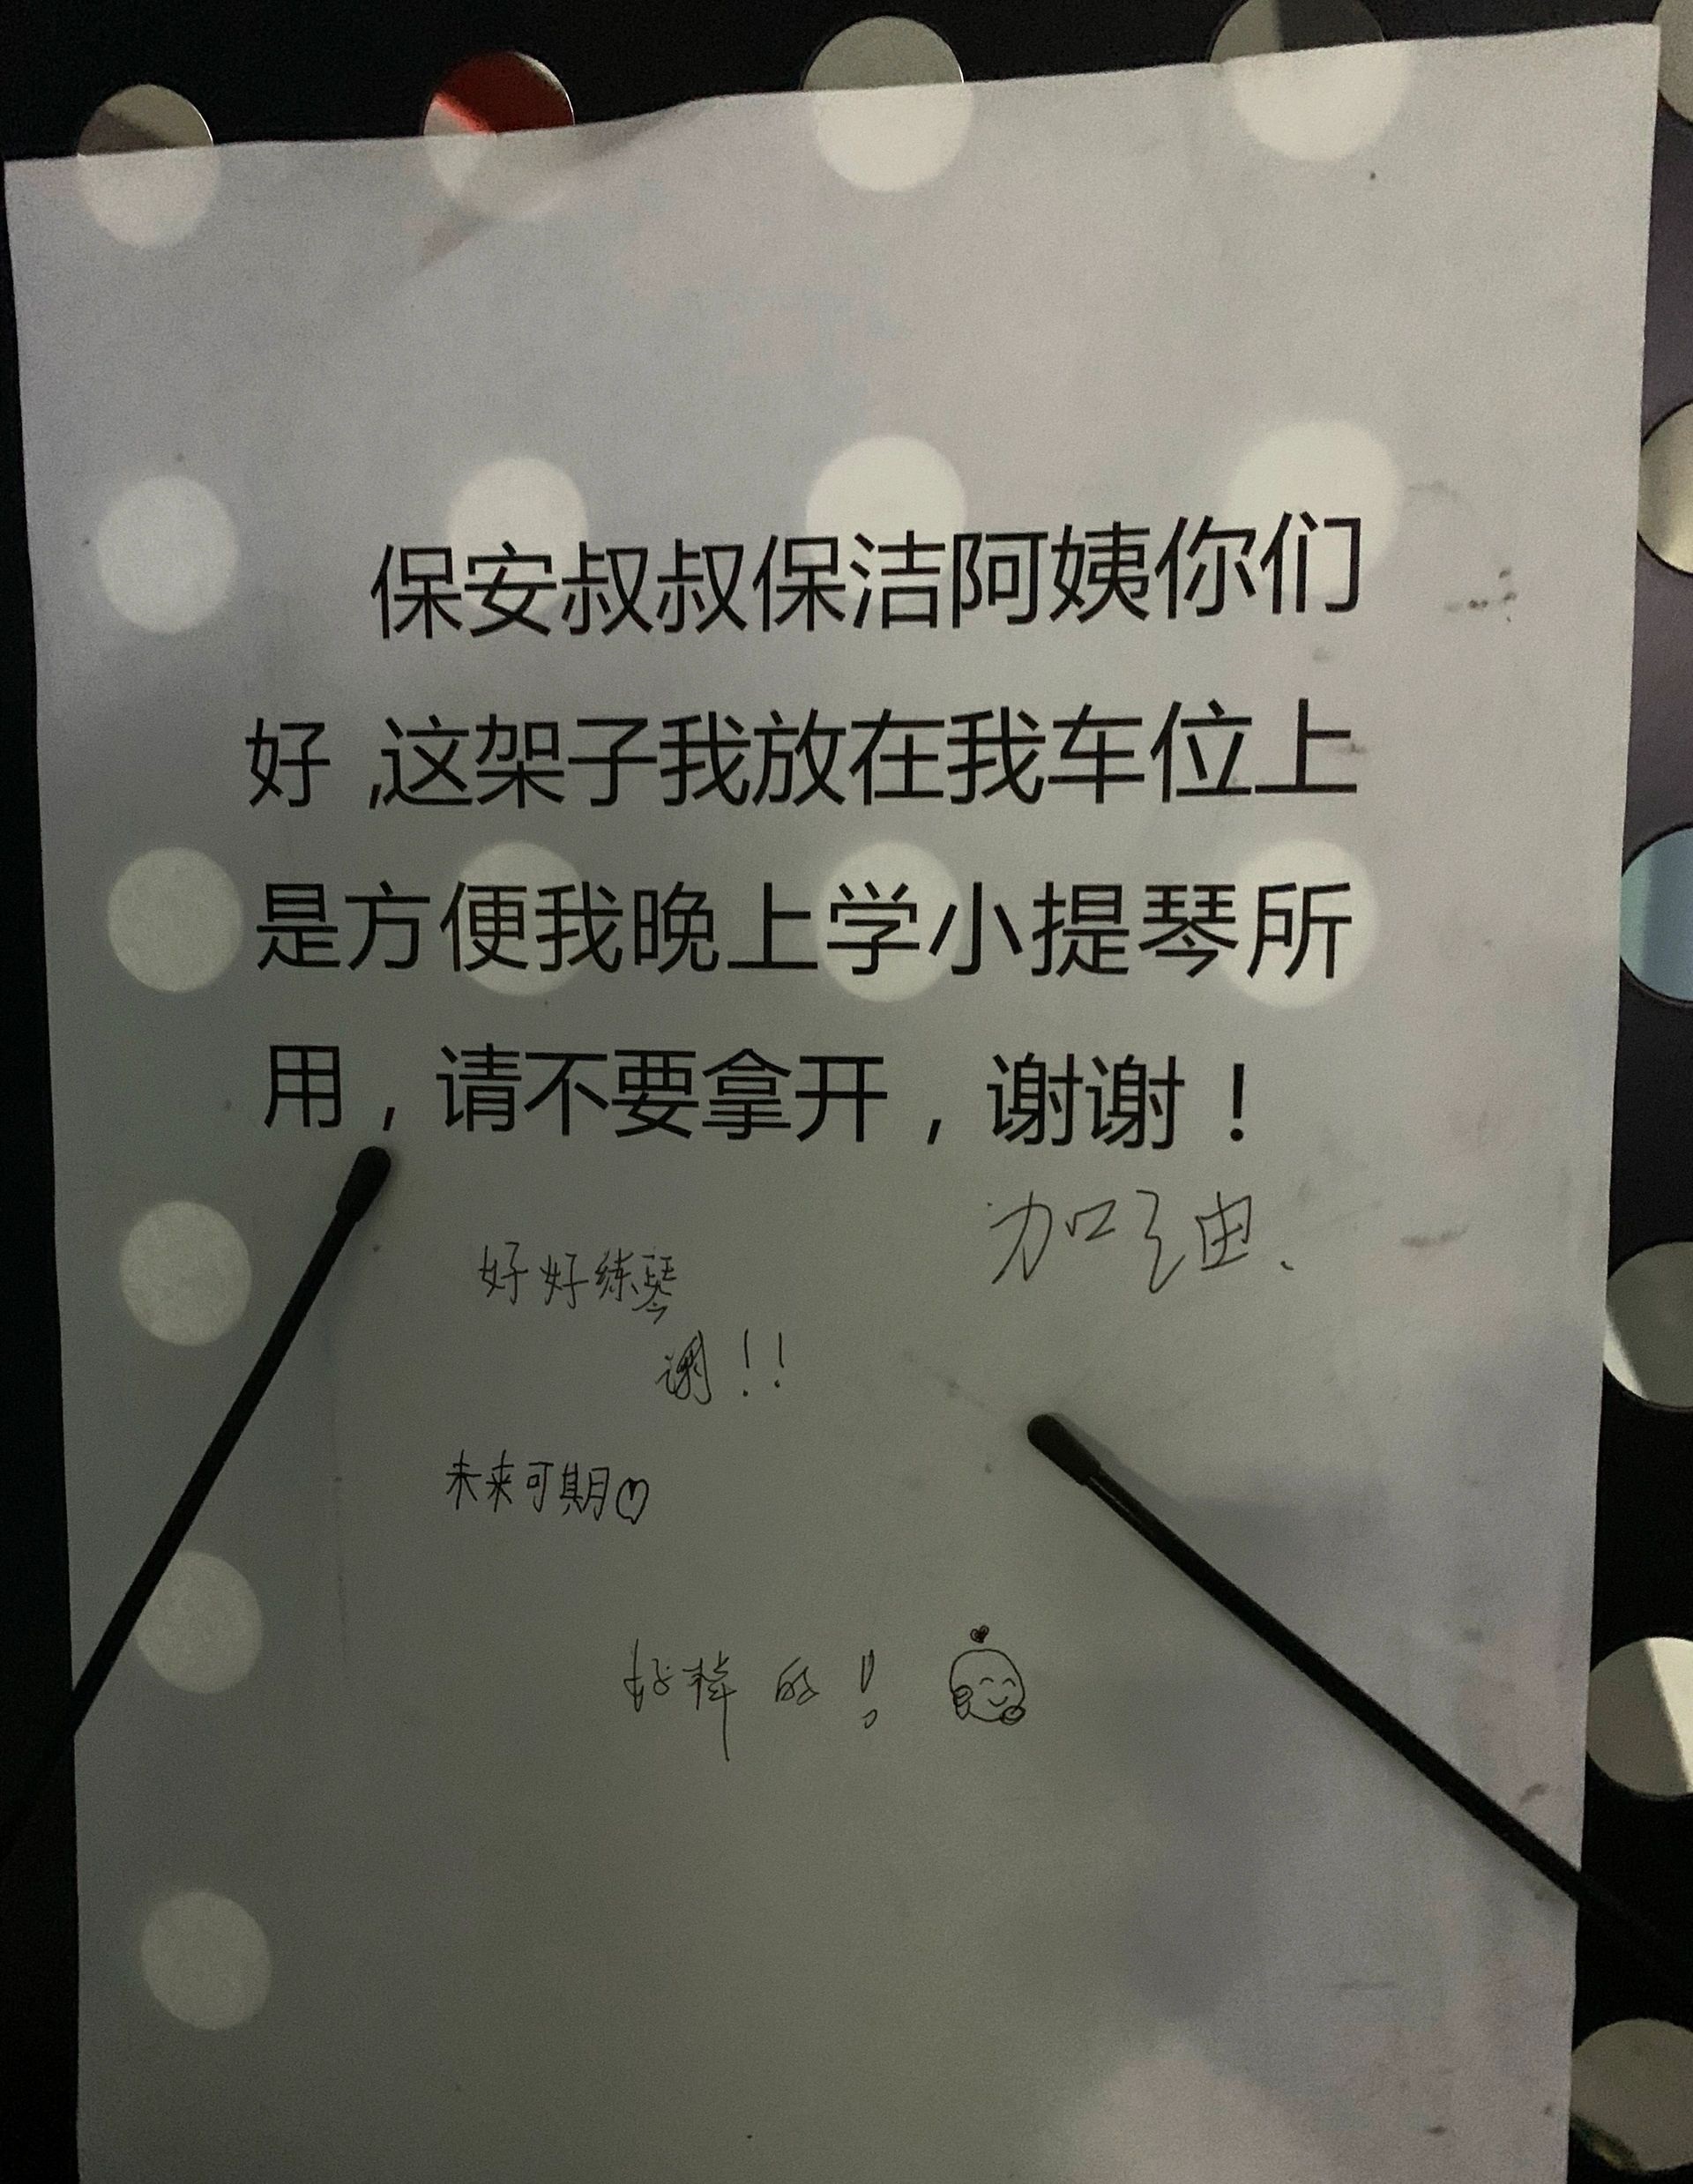 保安叔叔保洁阿姨你们
好,这架子我放在我车位上
是方便我晚上学小提琴所
用，请不要拿开，谢谢！
加油.
好好练琴
!!
未来可期♡
好样的!